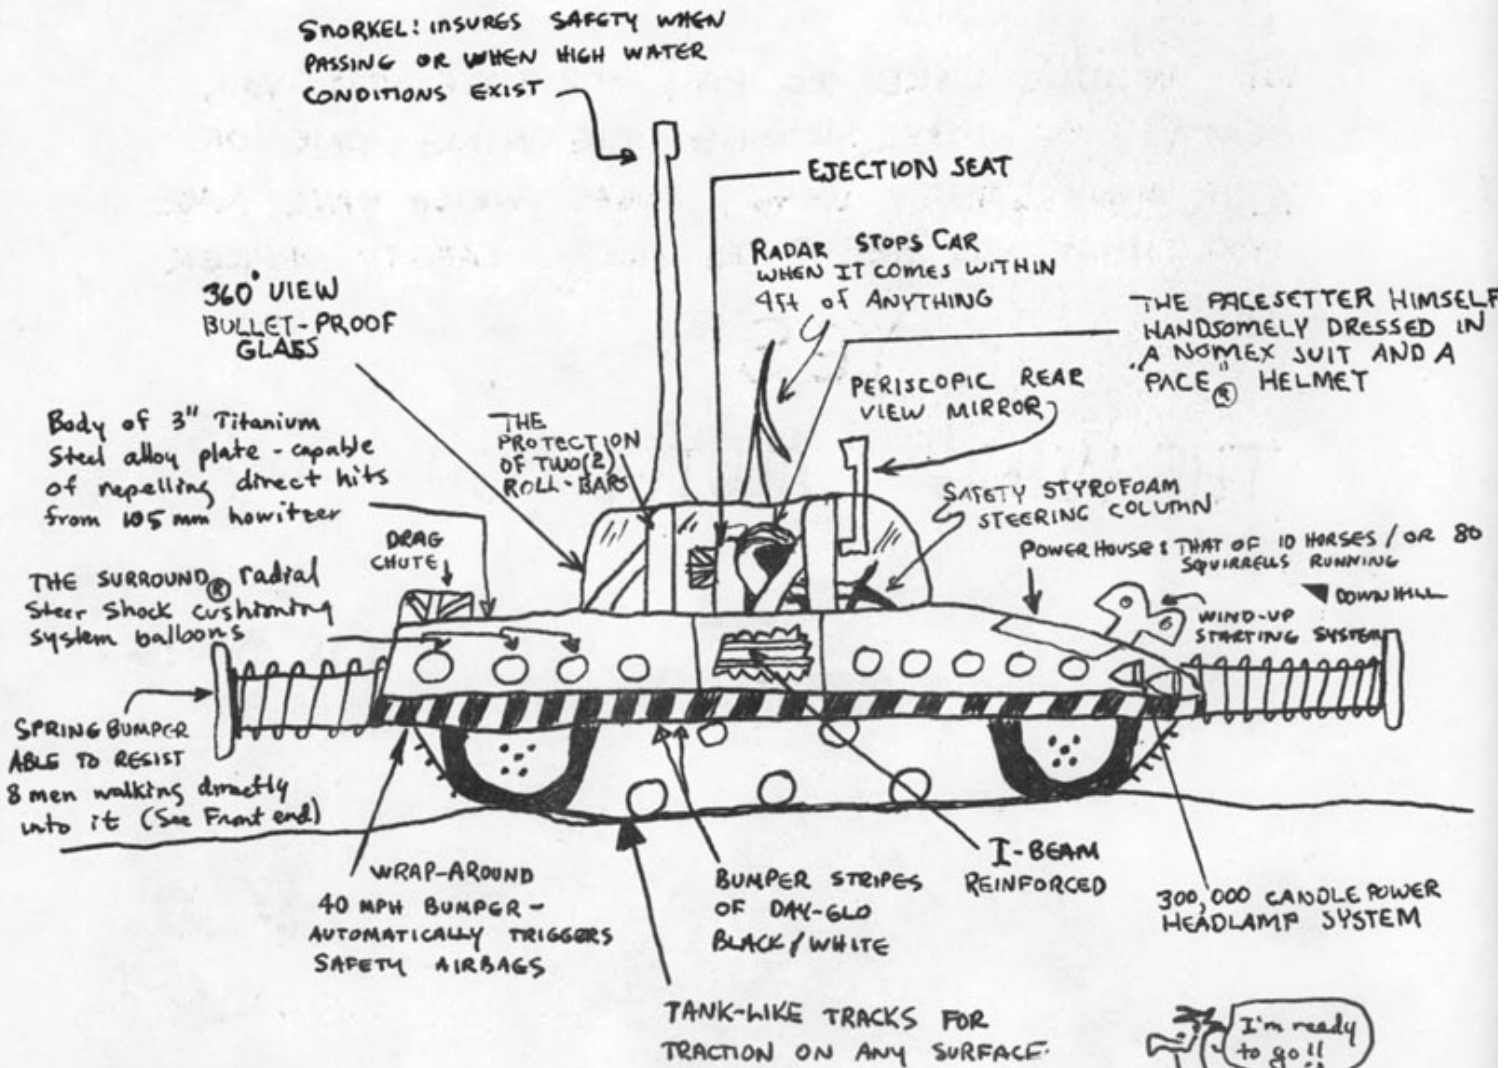 SNORKEL: INSURES SAFETY WHEN
PASSING OR WHEN HIGH WATER
CONDITIONS EXIST
EJECTION SEAT
RADAR STOPS CAR
WHEN IT COMES WITHIN
4ft of ANYTHING
360° VIEW
BULLET-PROOF
GLASS
THE PACESETTER HIMSELF
HANDSOMELY DRESSED IN
A NOMEX SUIT AND A
"PACE"® HELMET
PERISCOPIC REAR
VIEW MIRROR
Body of 3" Titanium
Steel alloy plate - capable
of repelling direct hits
from 105 mm howitzer
THE
PROTECTION
OF TWO(2)
ROLL-BARS
SAFETY STYROFOAM
STEERING COLUMN
DRAG
CHUTE
POWER HOUSE: THAT OF 10 HORSES / OR 80
SQUIRRELLS RUNNING
DOWNHILL
THE SURROUND® radial
Steer Shock cushioning
system balloons
WIND-UP
STARTING SYSTEM
SPRING BUMPER
ABLE TO RESIST
8 men walking directly
into it (See Front end)
WRAP-AROUND
40 MPH BUMPER-
AUTOMATICALLY TRIGGERS
SAFETY AIRBAGS
BUMPER STRIPES
OF DAY-GLO
BLACK/WHITE
I-BEAM
REINFORCED
300,000 CANDLE POWER
HEADLAMP SYSTEM
TANK-LIKE TRACKS FOR
TRACTION ON ANY SURFACE.
I'm ready
to go!!